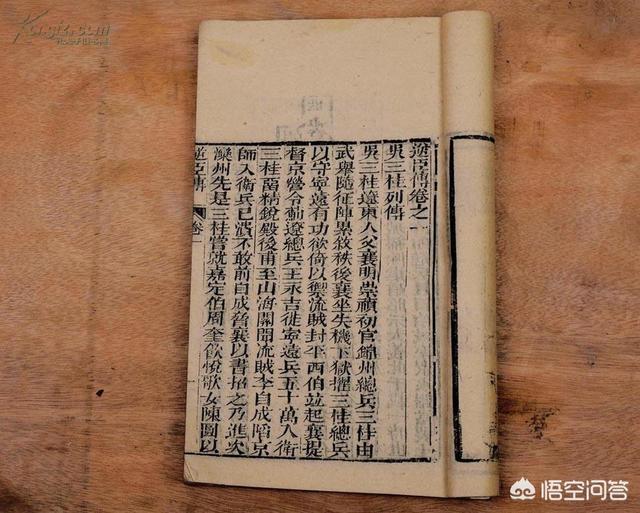 逆臣傳卷之一
吳三桂列傳
吳三桂遼東人父襄明崇禎初官錦州總兵三桂由
武舉隨征陣累敘秩後襄坐失機下獄擢三桂總兵
以守寧遠有功欲倚以禦流賊封平西伯竝起襄提
督京營令動遼總兵王永吉徙寧遠兵五十萬入衛
三桂畱精銳殿後甫至山海關聞流賊李自成陷京
師入衛兵已潰不敢前自成脅襄以書招之乃進次
灤州先是三桂嘗就嘉定伯周奎飲悅歌女陳圓以
逆臣傳 卷一
悟空问答